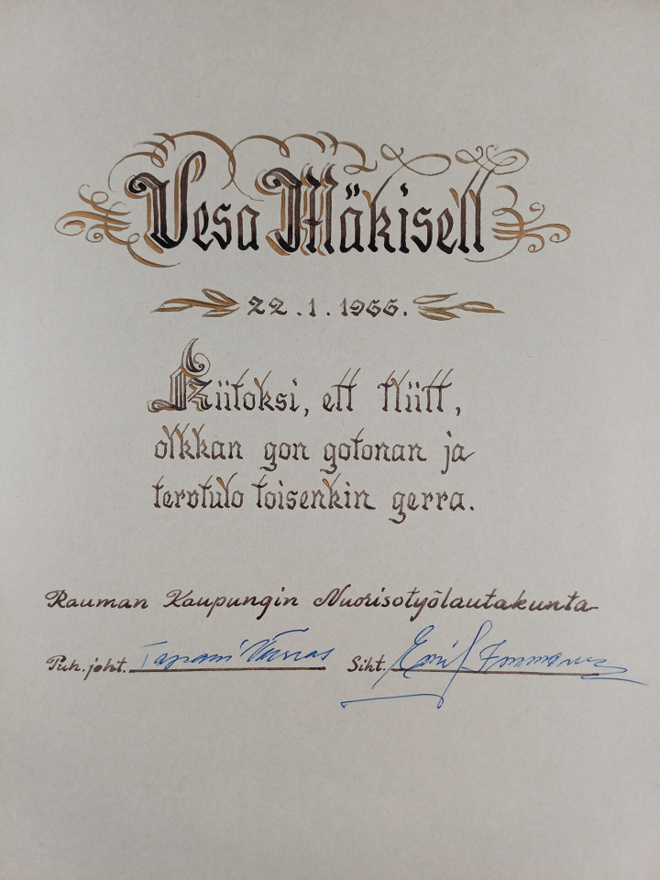 Vesa Mäkisell
22.1.1966.
Kiitoksi, ett tliitt,
olkkan gon gotonan ja
tervtulo toisenkin gerra.
Rauman Kaupungin Nuorisotyölautakunta
Puh.joht. Tapani Siht.